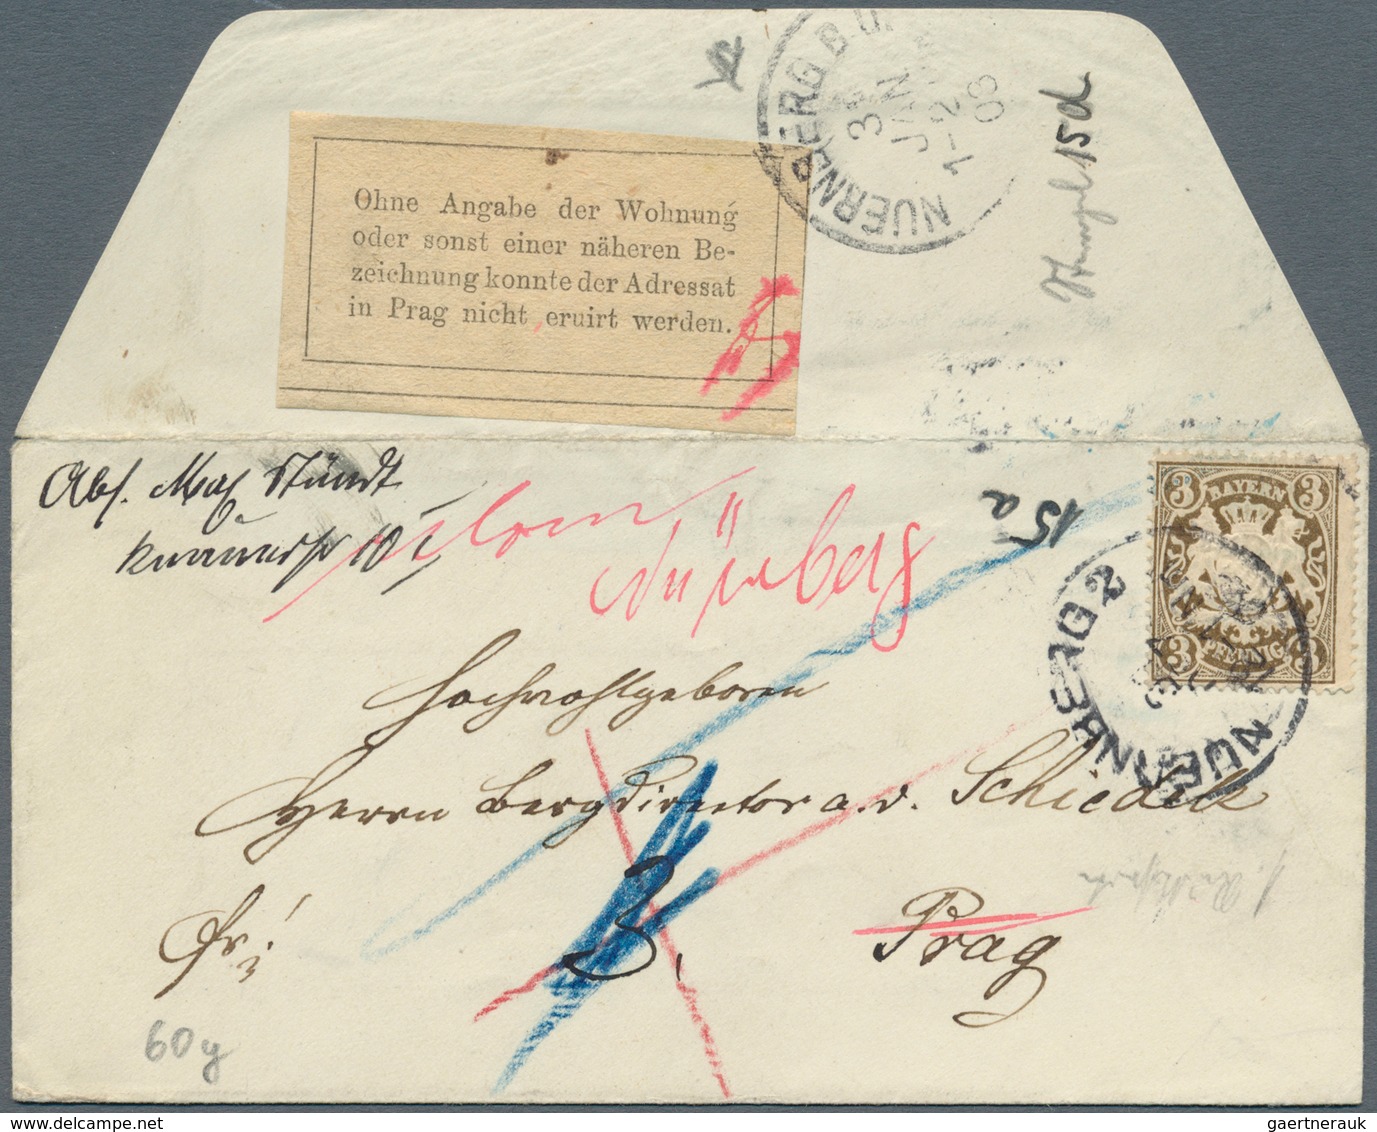 NUERNBERG B.
3
JAN
1-2
03
15d
Ohne Angabe der Wohnung
oder sonst einer näheren Be-
zeichnung konnte der Adressat
in Prag nicht eruirt werden.
Abs. Max
10
Nürnberg
15a
3 BAYERN 3
3 PFENNIG 3
NUERNBERG 2
Hochwohlgeboren
Herrn Bergdirector a. D. Schiedek
fr: 3. Prag
60 y
delcampe.net
gaertnerauk